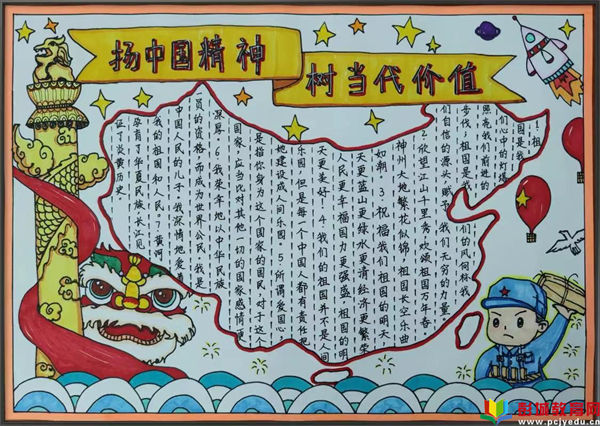 扬中国精神
树当代价值
1.祖
国是我
们心中的灯塔
照亮我们前进的
步伐，祖国是我们的风向标，我
们自信的源头，赋予我们无穷的力量。
2.欣望江山千里秀，欢颂祖国万年春
神州大地繁花似锦，祖国长空乐曲
如朝。3.祝福我们祖国的明天
天更蓝山更绿水更清经济更繁荣
人民更幸福国力更强盛，祖国的明
天更美好！4.我们的祖国并不是人间
乐园，但是每一个中国人都有责任把
地建设成人间乐园。5.所谓爱国心
是指你身为这个国家的国民，对于这个
国家，应当比对其他一切的国家感情更
深厚。6.我荣幸地以中华民族
一员的资格，而成为世界公民。我是
中国人民的儿子，我深情地爱
我的祖国和人民。7.黄河
孕育了华夏民族，长江见
证了炎黄历史。
彭城教育网
www.pcjyedu.cn